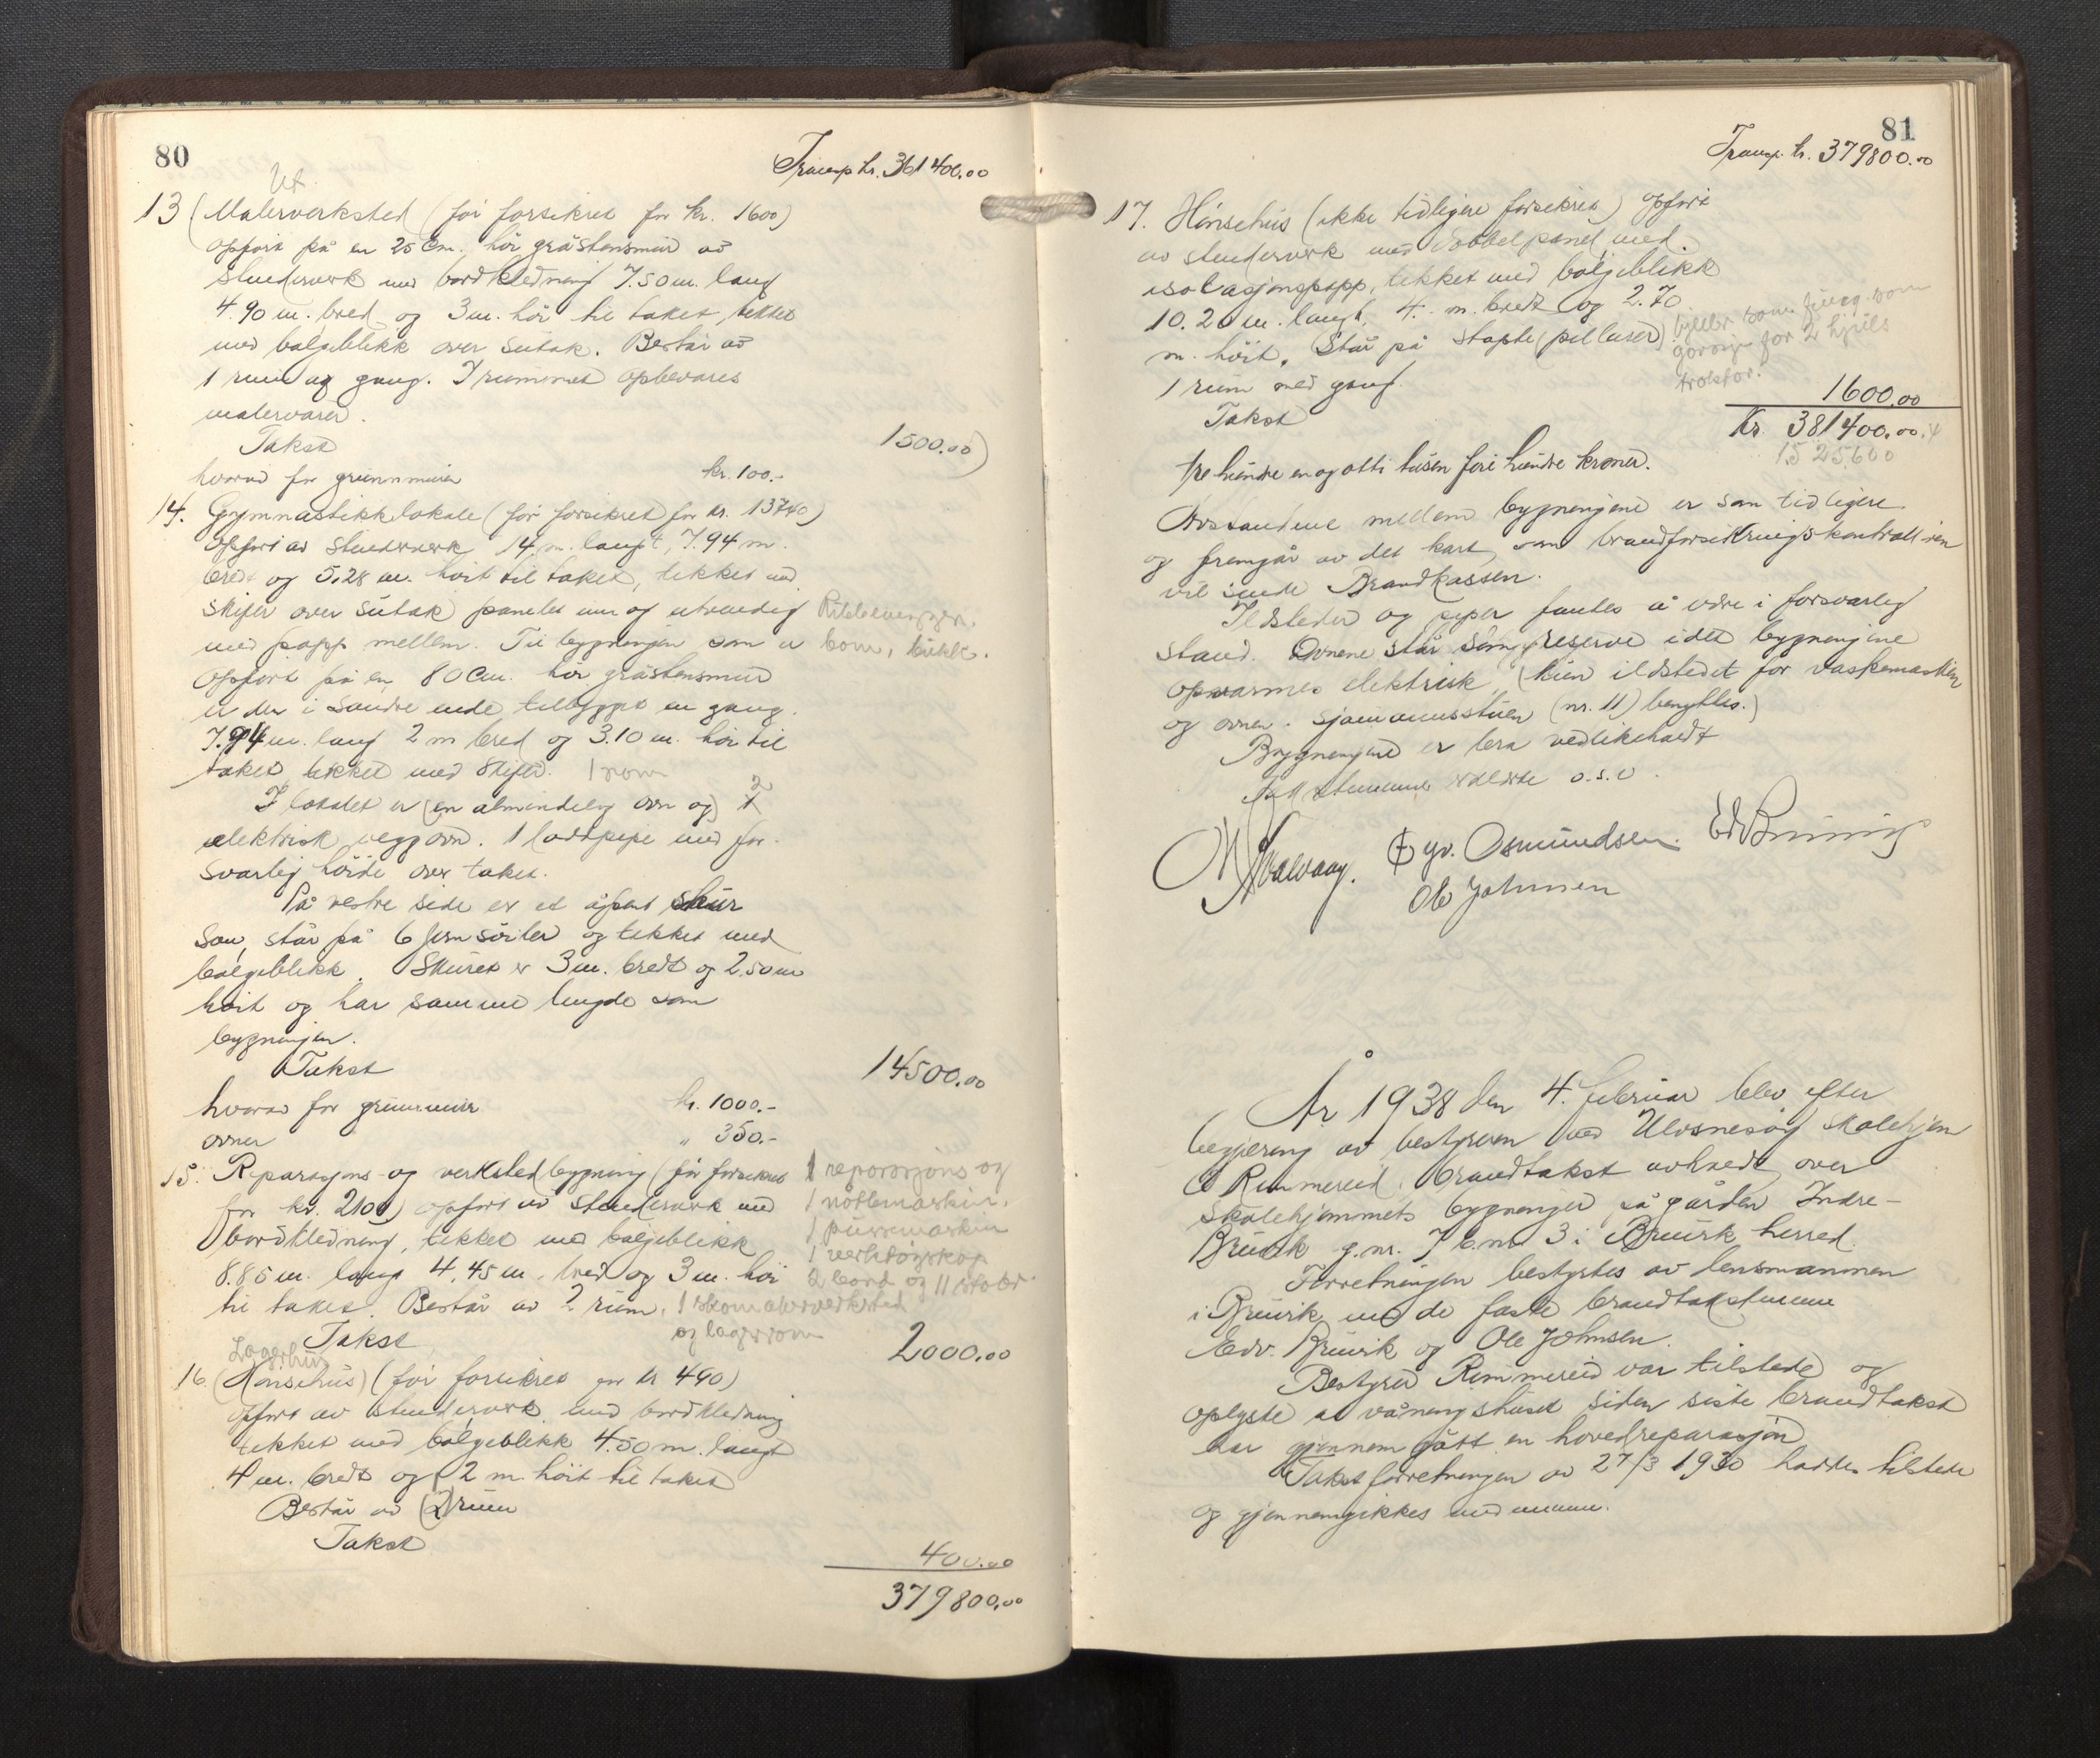 80
Transp kr. 361400.00
Ut.
13 (Malerverksted (før forsikret for kr. 1600)
opført på en 25 cm. høi gråstensmur av
stenderverk med bordkledning 7.50 m. lang
4.90 m. bred og 3 m. høi til taket, tekket
med bølgeblikk over sutak. Består av
1 rum og gang. I rummet opbevares
malervarer.
Takst 1500.00)
hvorav for grunnmuren kr. 100.-
14. Gymnastikklokale (før forsikret for kr. 13740)
opført av stenderverk 14 m. langt, 7.94 m.
bredt og 5,28 m. høit til taket, tekket med
skifer over sutak panelet inn og utvendig Ribbevegger.
med papp mellem. Til bygningen som er bom, bukk.
opført på en 80 cm. høi gråstensmur
er der i søndre ende tilbygget en gang
7.94 m. lang 2 m bred og 3.10 m. høi til
taket tekket med skifer. 1 rom
I lokalet er (en almindelig ovn og) 1 2
elektrisk veggovn. 1 loddpipe med for-
svarlig høide over taket.
På vestre side er et åpent skur
som står på 6 jernsøiler og tekket med
bølgeblikk. Skuret er 3 m. bredt og 2.50 m
høit og har samme lengde som
bygningen.
Takst 14500.00
hvorav for grunnmur kr. 1000.-
ovner " 350.-
15. Reparasjons- og verkstedbygning (før forsikret 1 reparasjons og
for kr. 2100) opført av stenderverk med 1 nåtlemaskin.
bordkledning, tekket med bølgeblikk 1 pussemaskin
8.85 m. lang 4,45 m. bred og 3 m. høi 1 verktøyskap
til taket. Består av 2 rum. 2 bord og 11 stoler.
1 skomakerverksted
og lagerrom
Takst 2000.00
Lagerhus
16. (Hønsehus) (før forsikret for kr 490)
opført av stenderverk med bordkledning
tekket med bølgeblikk 4.50 m. langt
4 m. bredt og 2 m høit til taket
Består av (2) rum
Takst 400.00
379800.00
81
Transp. kr. 379800.00
17. Hønsehus (ikke tidligere forsikret) opført
av stenderverk med dobbel panel med
isolasjonspapp, tekket med bølgeblikk
10.20 m. langt, 4. m. bredt og 2.70
m. høit. Står på støpte (pillarer) som
garasje for 2 hjuls
traktor.
1 rum med gang.
Takst 1600.00
Kr. 381400.00
1525600
tre hundre en og otti tusen fire hundre kroner.
Avstandene mellem bygningene er som tidligere
og fremgår av det kart som brandforsikringskontrolløren
vil sende Brandkassen.
Ildsteder og piper fantes å være i forsvarlig
stand. Ovnene står som reserve idet bygningene
opvarmes elektrisk (kun ildstedet for vaskemaskin
og ovnen i sjømannsstuen (nr. 11) benyttes.)
Bygningene er bra vedlikeholdt
Takstmennene o.s.v.
Kvalvaag. Gyv. Osmundsen. Edv Bruvig
Ole Johnsen
År 1938 den 4. februar blev efter
begjæring av bestyreren ved Ulvsnesøy skolehjem
Rimmereid, brandtakst avholdt over
skolehjemmets bygninger på gården Indre-
Bruvik g.nr. 7 b.nr 3 i Bruvik herred.
Forretningen bestyrtes av lensmannen
i Bruvik med de faste brandtakstmenn
Edv. Bruvik og Ole Johnsen.
Bestyrer Rimmereid var tilstede og
oplyste at våningshuset siden siste brandtakst
har gjennemgått en hovedreparasjon
Takstforretningen av 27/3 1930 haddes tilstede
og gjennemgikkes med mennene.